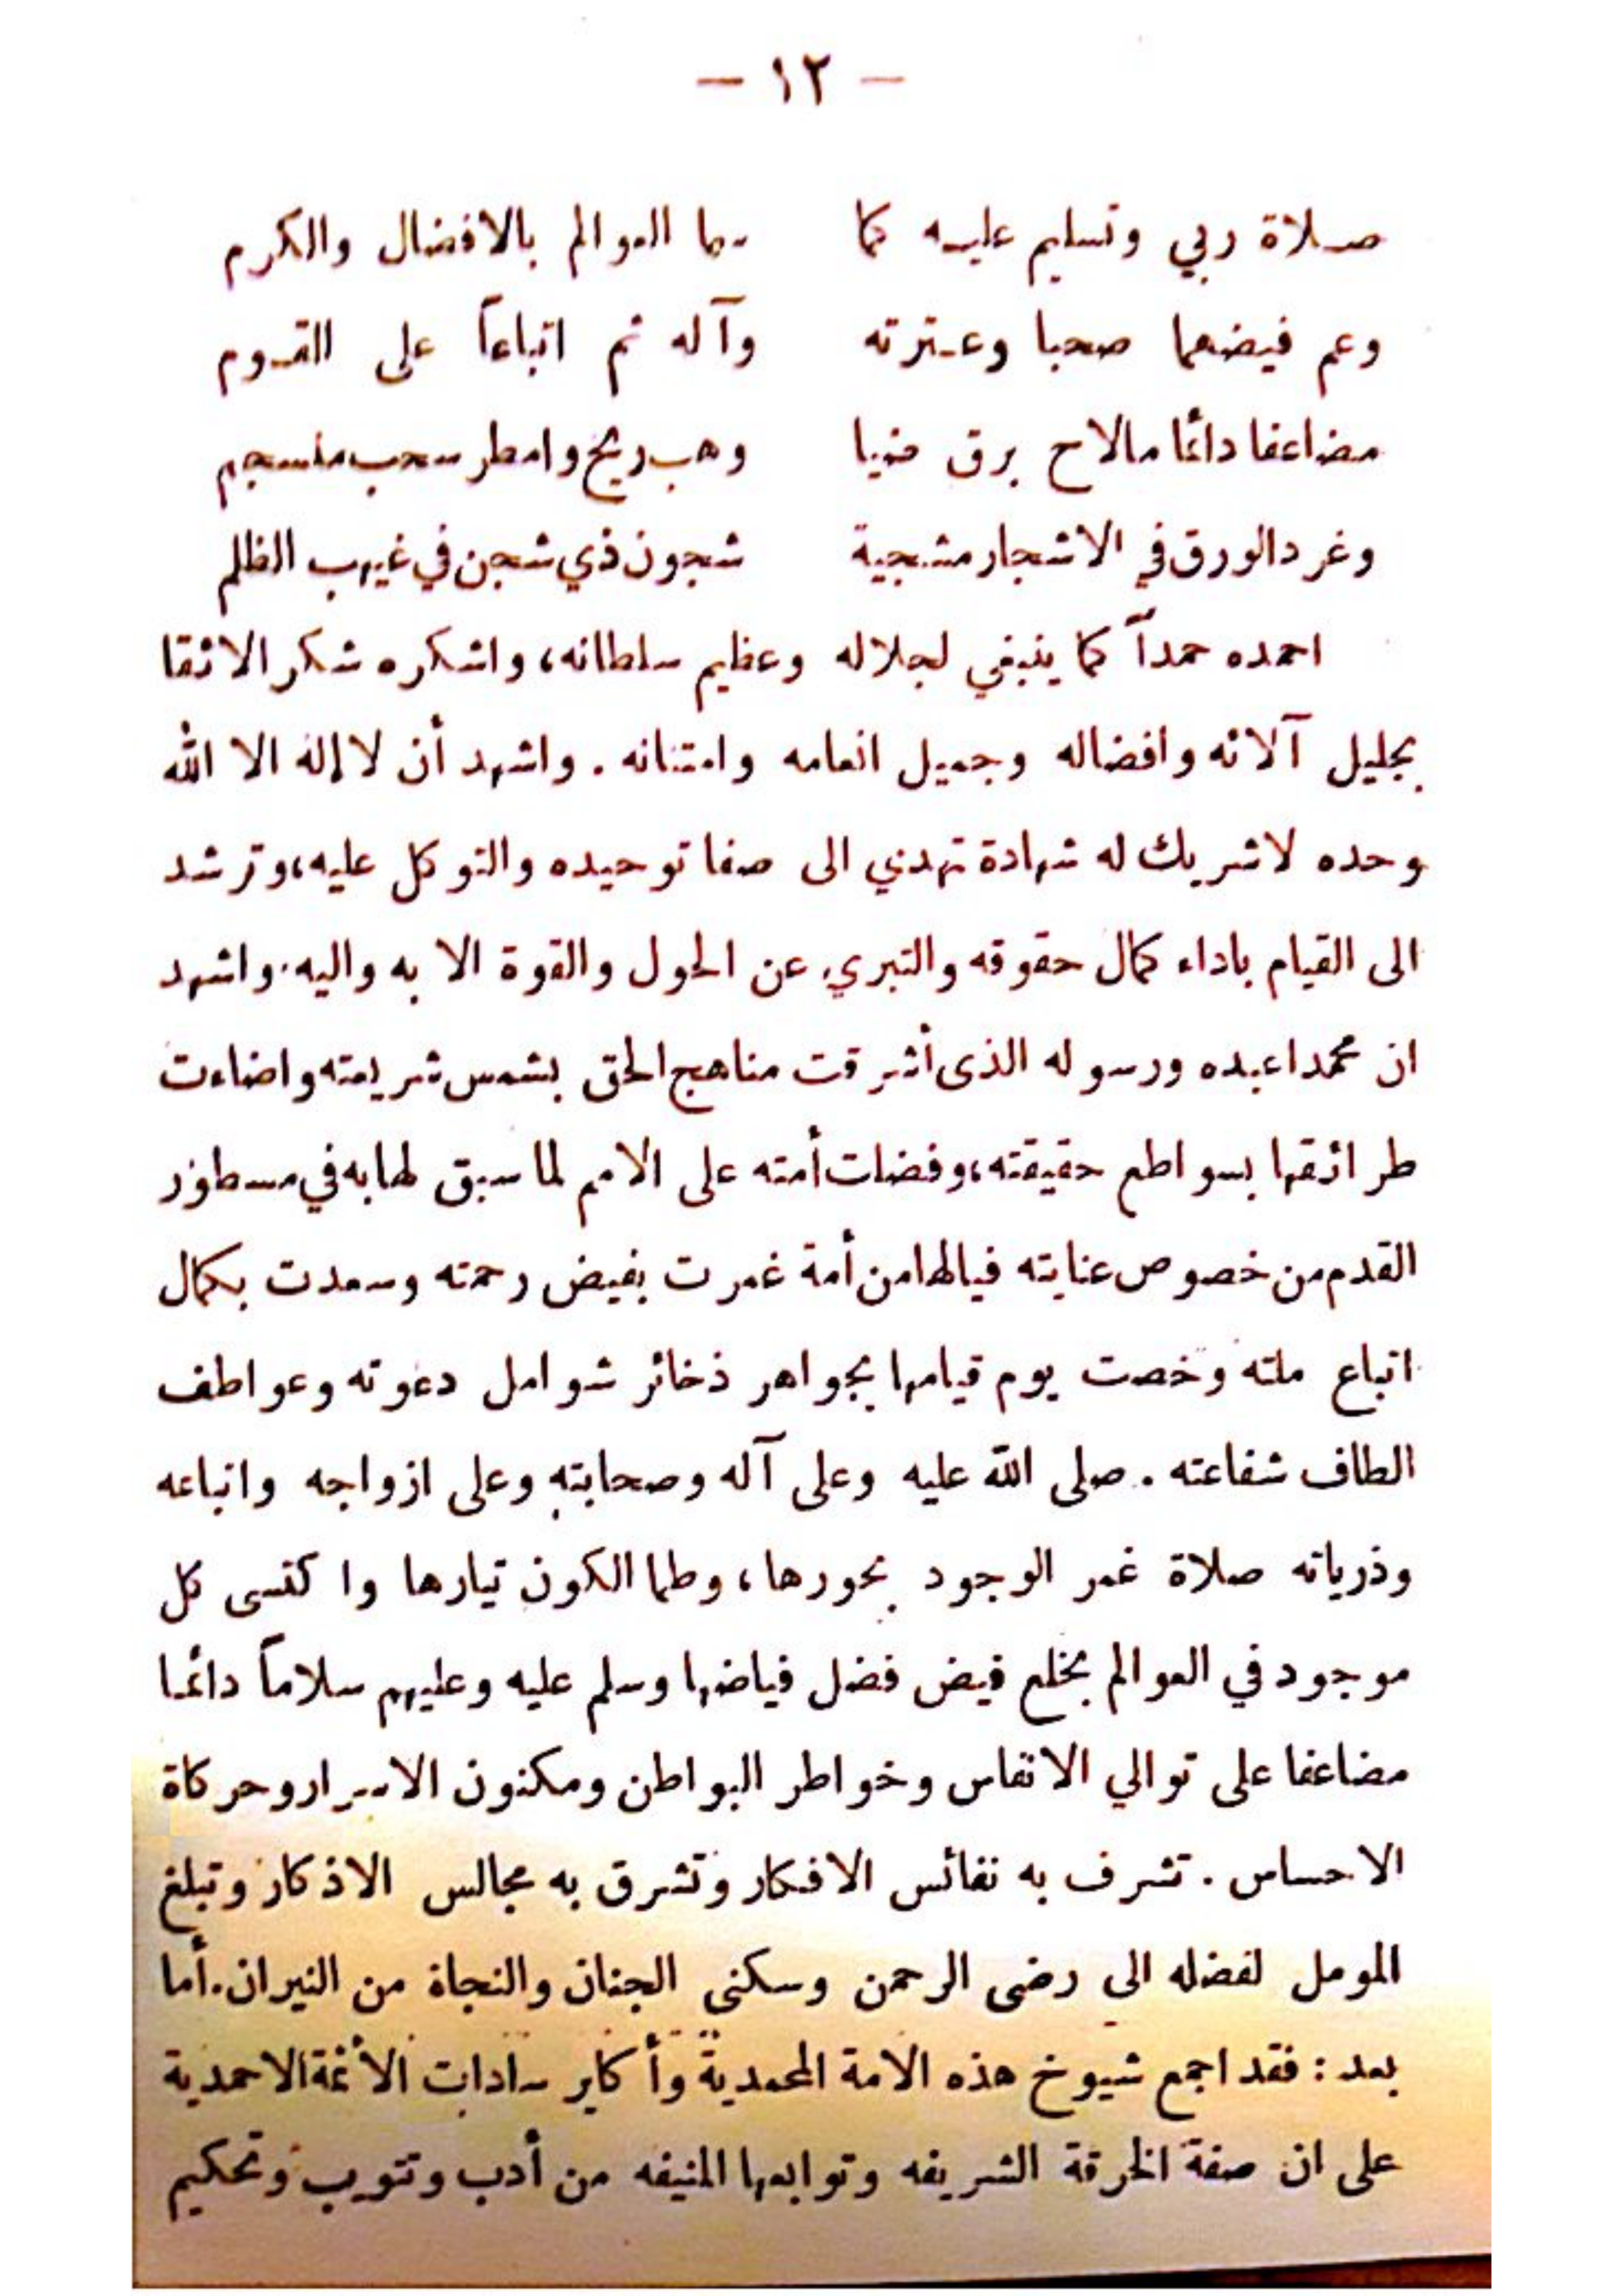 - ١٢ -
صلاة ربي وتسليم عليه كما سما العوالم بالافضال والكرم
وعم فيضهما صحبا وعترته وآله ثم اتباعاً على القدوم
مضاعفا دائما مالاح برق ضيا وهب ريح وامطر سحب منسجم
وغرد الورق في الاشجار مشجية شجون ذي شجن في غيهب الظلم
احمده حمداً كما ينبغي لجلاله وعظيم سلطانه، واشكره شكر الاثقا
بجليل آلائه وافضاله وجميل انعامه وامتنانه . واشهد أن لا إله الا الله
وحده لا شريك له شهادة تهدني الى صفا توحيده والتوكل عليه، وترشد
الى القيام باداء كمال حقوقه والتبري عن الحول والقوة الا به واليه. واشهد
ان محمدا عبده ورسوله الذى أشرقت مناهج الحق بشمس شريعته واضاءت
طرائقها بسواطع حقيقته، وفضلت أمته على الامم لما سبق لها به في مسطور
القدم من خصوص عنايته فيالها من أمة غمرت بفيض رحمته وسعدت بكمال
اتباع ملته وخصت يوم قيامها بجواهر ذخائر شوامل دعوته وعواطف
الطاف شفاعته . صلى الله عليه وعلى آله وصحابته وعلى ازواجه واتباعه
وذرياته صلاة غمر الوجود بحورها، وطما الكون تيارها واكتسى كل
موجود في العوالم بخلع فيض فضل فياضها وسلم عليه وعليهم سلاماً دائما
مضاعفا على توالي الانفاس وخواطر البواطن ومكنون الاسرار وحركاة
الاحساس . تشرف به نفائس الافكار وتشرق به مجالس الاذكار وتبلغ
المومل لفضله الى رضى الرحمن وسكنى الجنان والنجاة من النيران. أما
بعد : فقد اجمع شيوخ هذه الامة المحمدية وأكابر سادات الأئمة الاحمدية
على ان صفة الخرقة الشريفه وتوابعها المنيفه من أدب وتتويب وتحكيم